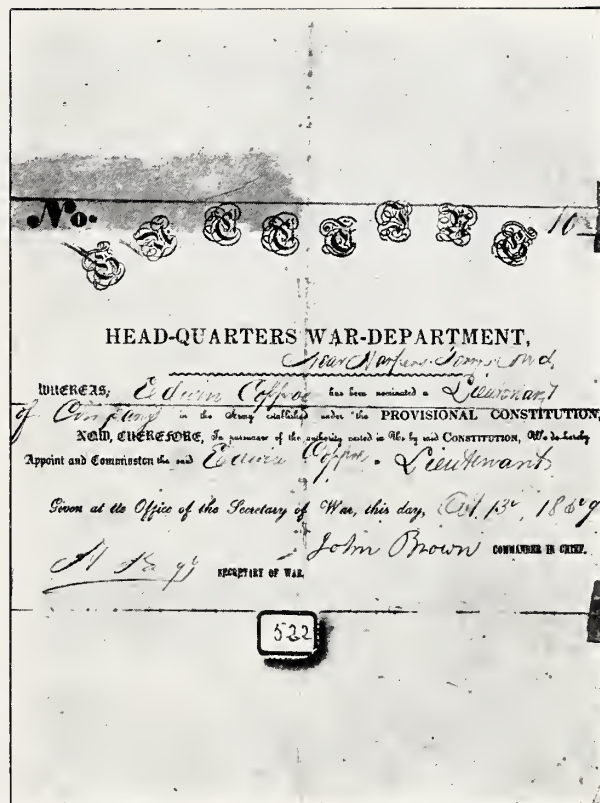 No. 10
HEAD-QUARTERS WAR-DEPARTMENT,
Near Harpers Ferry Md.
WHEREAS, Edwin Coppoc has been nominated a Lieutenant
of Company in the Army established under the PROVISIONAL CONSTITUTION,
NOW, THEREFORE, In pursuance of the authority vested in Us by said CONSTITUTION, We do hereby
Appoint and Commission the said Edwin Coppoc . Lieutenant
Given at the Office of the Secretary of War, this day, Oct. 13th, 1859
John Brown COMMANDER IN CHIEF.
SECRETARY OF WAR.
522